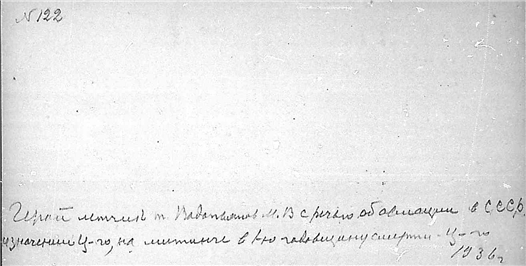 №122
Герой летчик т. Водопьянов М.В с речью об авиации в С.С.С.Р.
и значении Ц-го, на митинге в 1-ю годовщину смерти Ц-го
1936г